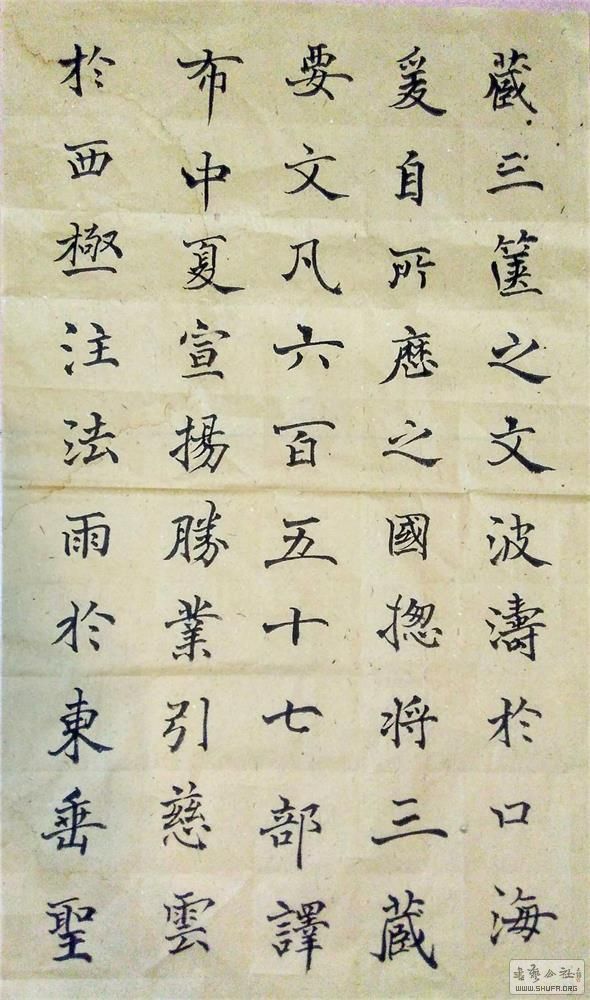 藏三箧之文波濤於口海
爰自所歷之國揔將三藏
要文凡六百五十七部譯
布中夏宣揚勝業引慈雲
於西極注法雨於東垂聖
WWW.SHUFA.ORG